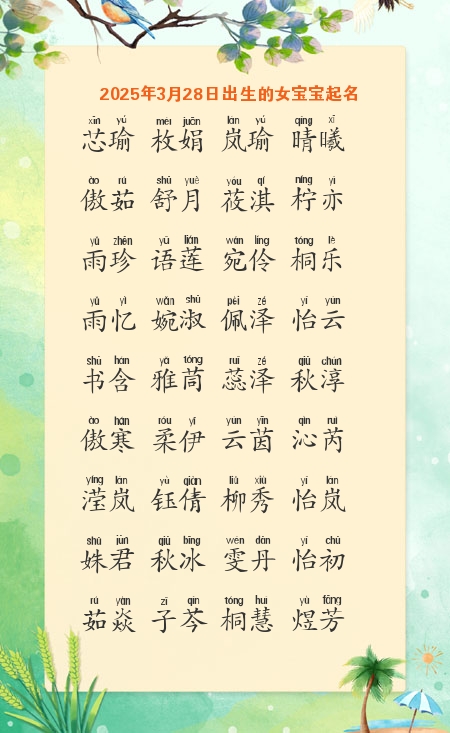 2025年3月28日出生的女宝宝起名
xīn yú méi juān lán yú qíng xī
芯瑜 枚娟 岚瑜 晴曦
ào rú shū yuè yóu qí níng yì
傲茹 舒月 莜淇 柠亦
yǔ zhēn yǔ lián wǎn líng tóng lè
雨珍 语莲 宛伶 桐乐
yǔ yì wǎn shū pèi zé yí yún
雨忆 婉淑 佩泽 怡云
shū hán yǎ tóng ruǐ zé qiū chún
书含 雅茼 蕊泽 秋淳
ào hán róu yī yún yīn qìn ruì
傲寒 柔伊 云茵 沁芮
yíng lán yù qiàn liǔ xiù yí lán
滢岚 钰倩 柳秀 怡岚
shū jūn qiū bīng wén dān yí chū
姝君 秋冰 雯丹 怡初
rú yàn zǐ qín tóng huì yù fāng
茹焱 子芩 桐慧 煜芳